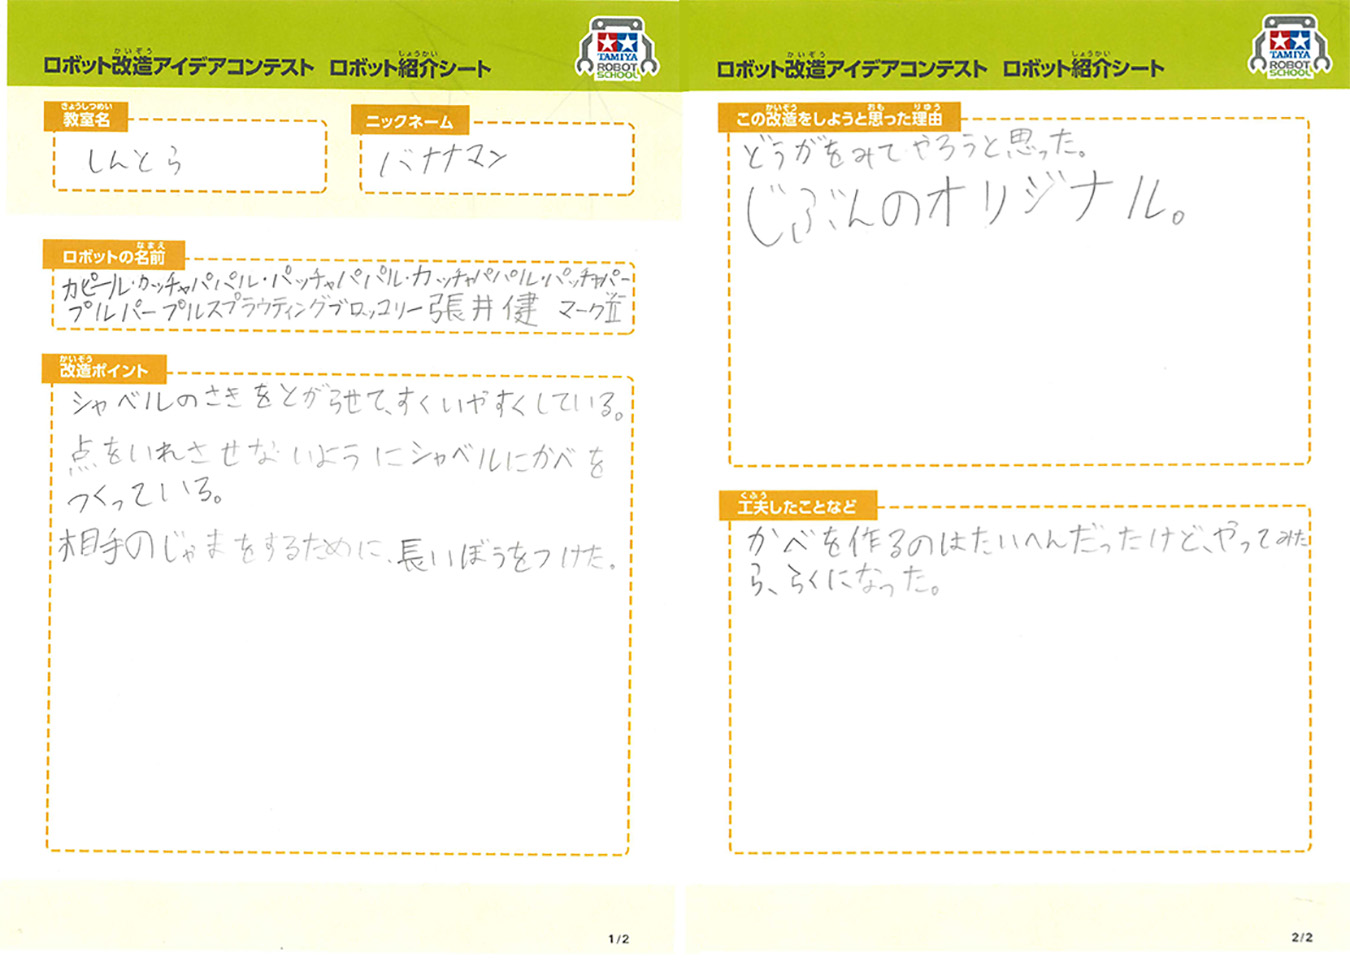 かいぞう
ロボット改造アイデアコンテスト
しょうかい
ロボット紹介シート
TAMIYA
ROBOT
SCHOOL
きょうしつめい
教室名
しんとら
ニックネーム
バナナマン
なまえ
ロボットの名前
カピール・カッチャパパル・パッチャパパル・カッチャパパル・パッチャパー
プルパープルスプラウティングブロッコリー張井健 マーク
かいぞう
改造ポイント
シャベルのさきをとがらせて、すくいやすくしている。
点をいれさせないようにシャベルにかべを
つくっている。
相手のじゃまをするために、長いぼうをつけた。
1/2
かいぞう
ロボット改造アイデアコンテスト
しょうかい
ロボット紹介シート
TAMIYA
ROBOT
SCHOOL
かいぞう おも りゆう
この改造をしようと思った理由
どうがをみてやろうと思った。
じぶんのオリジナル。
くふう
工夫したことなど
かべを作るのはたいへんだったけど、やってみた
ら、らくになった。
2/2